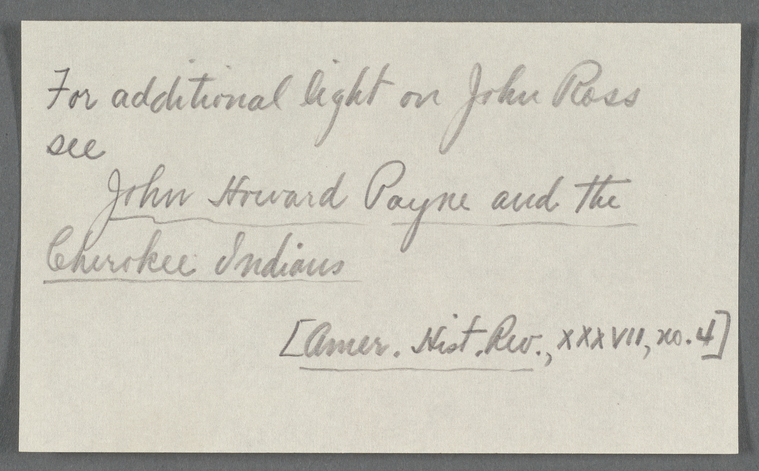 For additional light on John Ross
see
John Howard Payne and the
Cherokee Indians
[Amer. Hist. Rev., XXXVII, no. 4]